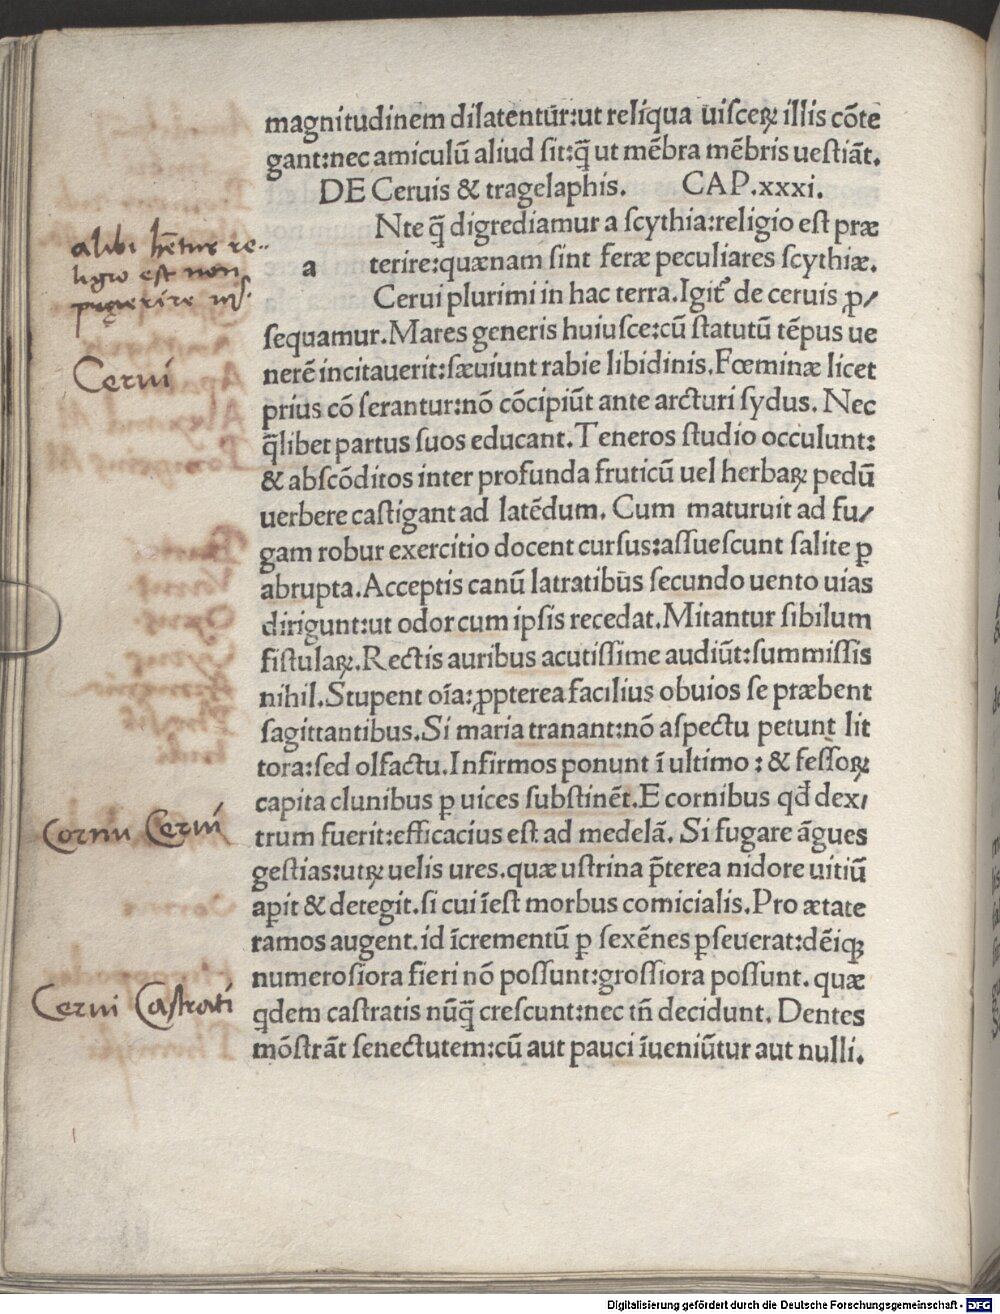 magnitudinem dilatentūr:ut reliqua uisceꝝ illis cōte
gant:nec amiculū aliud sit:q̄ ut mēbra mēbris uestiāt.
DE Ceruis & tragelaphis. CAP.xxxi.
Nte q̄ digrediamur a scythia:religio est præ
a terire:quænam sint feræ peculiares scythiæ.
Cerui plurimi in hac terra.Igit̃ de ceruis ꝓ/
sequamur.Mares generis huiusce:cū statutū tēpus ue
nerē incitauerit:sæuiunt rabie libidinis.Fœminæ licet
prius cō serantur:nō cōcipiūt ante arcturi sydus. Nec
q̄libet partus suos educant.Teneros studio occulunt:
& abscōditos inter profunda fruticū uel herbaꝝ pedū
uerbere castigant ad latēdum. Cum maturuit ad fu/
gam robur exercitio docent cursus:assuescunt salite ꝑ
abrupta.Acceptis canū latratibūs secundo uento uias
dirigunt:ut odor cum ipsis recedat.Mitantur sibilum
fistulaꝝ.Rectis auribus acutissime audiūt:summissis
nihil.Stupent oīa:ꝓpterea facilius obuios se præbent
sagittantibus.Si maria tranant:nō aspectu petunt lit
tora:sed olfactu.Infirmos ponunt ī ultimo : & fessoꝝ
capita clunibus ꝑ uices substinēt.E cornibus qd̄ dex/
trum fuerit:efficacius est ad medelā. Si fugare āgues
gestias:utꝝ uelis ures.quæ ustrina p̄terea nidore uitiū
aꝑit & detegit.si cui īest morbus comicialis.Pro ætate
ramos augent.id īcrementū ꝑ sexēnes ꝑseuerat:dēiqꝫ
numerosiora fieri nō possunt:grossiora possunt.quæ
qdem castratis nūq̄ crescunt:nec tn̄ decidunt. Dentes
mōstrāt senectutem:cū aut pauci īueniūtur aut nulli.
alibi hētur re-
ligio est non
Cerui
Cornu Cerui
Cerui Castrati
Digitalisierung gefördert durch die Deutsche Forschungsgemeinschaft - DFG